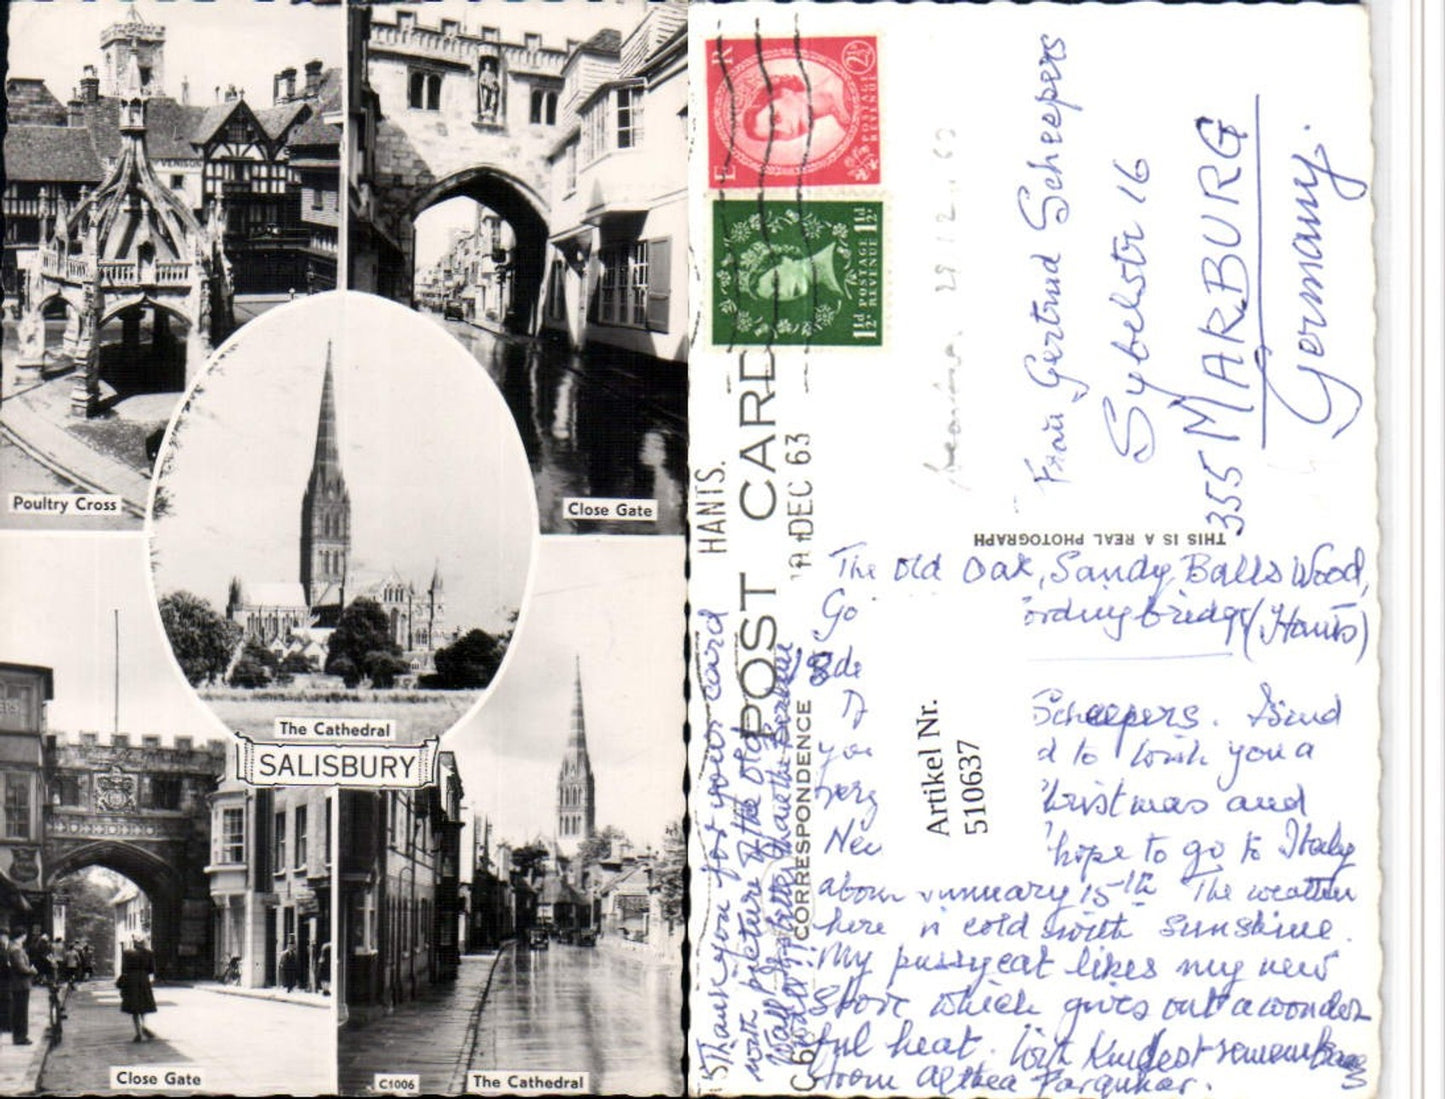 VENISON
Poultry Cross
Close Gate
The Cathedral
SALISBURY
Close Gate
C1006
The Cathedral
E R
2½D
POSTAGE
REVENUE
1½D
1½D
POSTAGE
REVENUE
HANTS.
DEC 63
POST CARD
CORRESPONDENCE
THIS IS A REAL PHOTOGRAPH
Frau Gertrud Scheepers
Sybelstr 16
355 MARBURG
Germany.
28 12 63
The Old Oak, Sandy Balls Wood,
Go ordingbridge (Hants)
18 de
Scheepers. I send
you d to wish you a
very hristmas and
Nev hope to go to Italy
about anuary 15th The weather
here is cold with sunshine.
My pussycat likes my new
stove which gives out a wonder
ful heat. With kindest remembrances
from Althea Farquhar.
Thank you for your card
with picture of the old
Artikel Nr.
510637